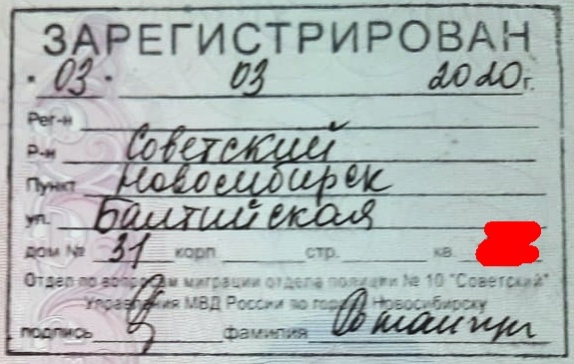 ЗАРЕГИСТРИРОВАН
"03" 03 2020г.
Рег-н
Р-н Советский
Пункт Новосибирск
ул. Балтийская
дом № 31 корп. стр. кв.
Отдел по вопросам миграции отдела полиции № 10 "Советский"
Управления МВД России по городу Новосибирску
подпись фамилия